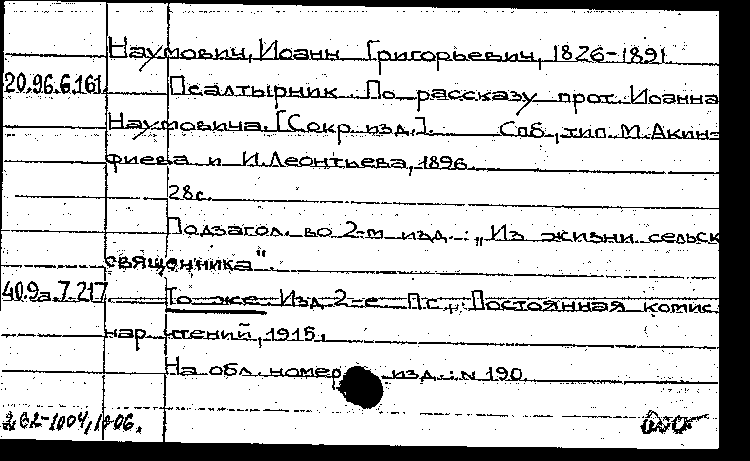 Наумович, Иоанн Григорьевич, 1826-1891
20.96.6.161. Псалтырник. По рассказу прот. Иоанна
Наумовича. [Сокр. изд.]. Спб., тип. М. Акин=
фиева и И. Леонтьева, 1896.
28с.
Подзагол. во 2-м изд.: „Из жизни сельск
священника".
40.9а.7.217. То же. Изд. 2-е. Пг., Постоянная комис.
нар. чтений, 1915.
На обл. номер изд.: N 190.